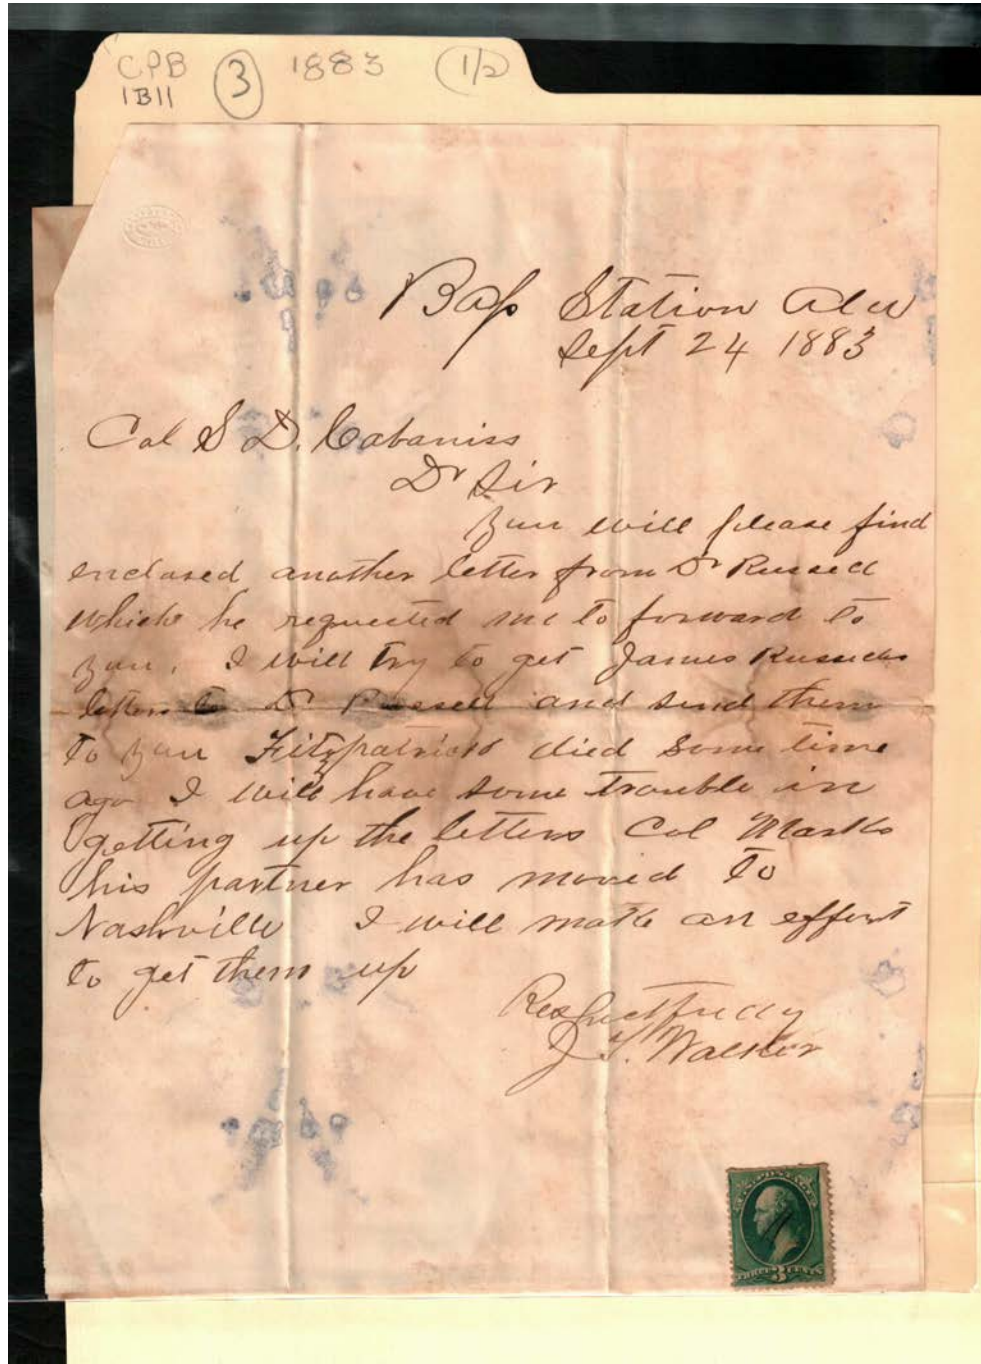 CPB 3 1883 (1/2)
1B11
Bass Station Ala
Sept 24 1883
Col S D. Cabaniss
Dr Sir
You will please find
enclosed another letter from Dr Russell
which he requested me to forward to
you. I will try to get James Russells
letters to Dr Russell and send them
to you Fitzpatrick died some time
ago I will have some trouble in
getting up the letters Col Marks
his partner has moved to
Nashville I will make an effort
to get them up
Respectfully
J. Walker
U.S. POSTAGE
THREE 3 CENTS